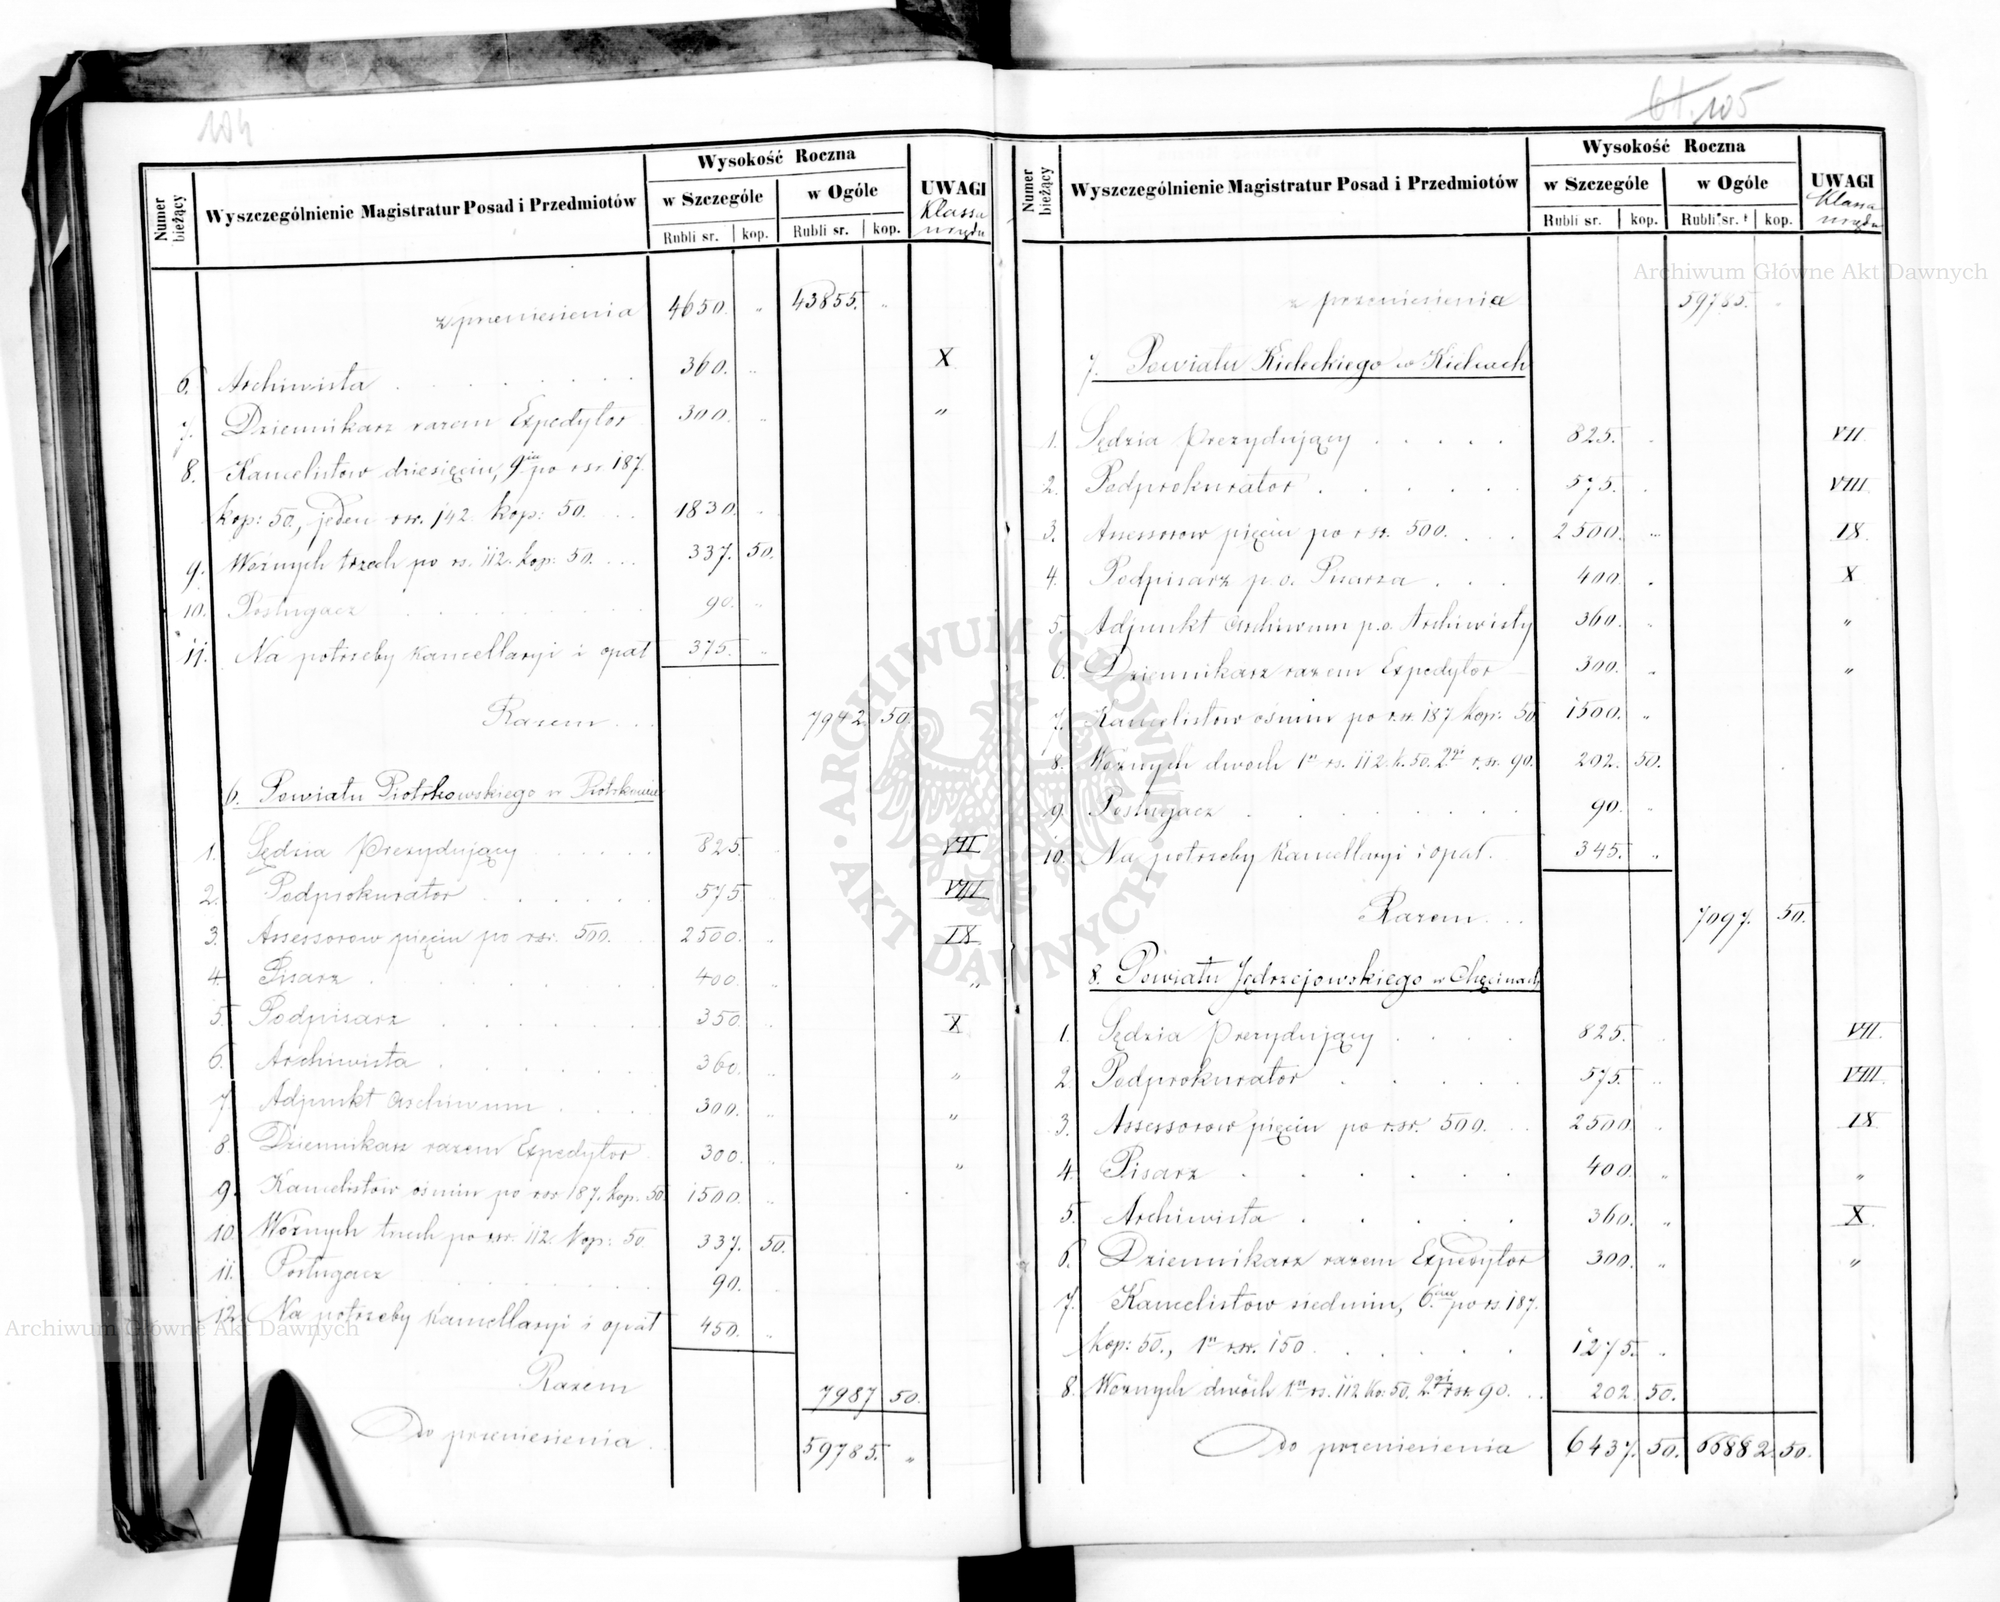 104
Numer bieżący
Wyszczególnienie Magistratur Posad i Przedmiotów
Wysokość Roczna
w Szczególe
w Ogóle
Rubli sr. kop. Rubli sr. kop.
UWAGI
Klassa
urzędu
z przeniesienia 4650. " 43855. "
6. Archiwista 360. " X
7. Dziennikarz razem Expedytor 300. " "
8. Kancelistów dziesięciu, 9iu po rsr. 187
kop: 50., jeden rsr. 142 kop: 50. 1830. "
9. Woźnych trzech po rs. 112. kop: 50. 337. 50.
10. Posługacz 90. "
11. Na potrzeby Kancellaryi i opał 375. "
Razem 7942. 50.
6. Powiatu Piotrkowskiego w Piotrkowie
1. Sędzia Prezydujący 825. VII
2. Podprokurator 575. VIII
3. Assessorów pięciu po rsr. 500. 2500. " IX
4. Pisarz 400. " "
5. Podpisarz 350. " X
6. Archiwista 360. " "
7. Adjunkt Archiwum 300. " "
8. Dziennikarz razem Expedytor 300. " "
9. Kancelistów ośmiu po rsr 187. kop. 50. 1500. "
10. Woźnych trzech po rsr. 112. kop: 50 337. 50.
11. Posługacz 90.
12. Na potrzeby Kancellaryi i opał 450. "
Razem 7987 50.
Do przeniesienia 59785. "
61. 105
Numer bieżący
Wyszczególnienie Magistratur Posad i Przedmiotów
Wysokość Roczna
w Szczególe
w Ogóle
Rubli sr. kop. Rubli sr. kop.
UWAGI
Klassa
urzędu
z przeniesienia 59785. "
7. Powiatu Kieleckiego w Kielcach
1. Sędzia Prezydujący 825. VII.
2. Podprokurator 575. VIII
3. Assessorów pięciu po rsr. 500. 2500. " IX
4. Podpisarz p.o. Pisarza 400. X
5. Adjunkt Archiwum p.o. Archiwisty 360. " "
6. Dziennikarz razem Expedytor 300. " "
7. Kancelistów ośmiu po rsr. 187 kop: 50 1500. "
8. Woźnych dwóch 1n rs. 112. k. 50. 2gi rsr. 90. 202. 50.
9. Posługacz 90. "
10. Na potrzeby Kancellaryi i opał. 345. "
Razem 7097. 50.
8. Powiatu Jędrzejowskiego w Chęcinach
1. Sędzia Prezydujący 825. VII.
2. Podprokurator 575. " VIII.
3. Assessorów pięciu po rsr. 500. 2500 IX
4. Pisarz 400. " "
5. Archiwista 360. " X.
6. Dziennikarz razem Expedytor 300. " "
7. Kancelistów siedmiu, 6ciu po rs. 187.
kop: 50., 1n rsr. 150 1275. "
8. Woźnych dwóch 1n rs. 112 ko. 50. 2gi rsr 90. 202. 50.
Do przeniesienia 6437. 50. 66882. 50.
Archiwum Główne Akt Dawnych
ARCHIWUM GŁÓWNE · AKT DAWNYCH ·
Archiwum Główne Akt Dawnych